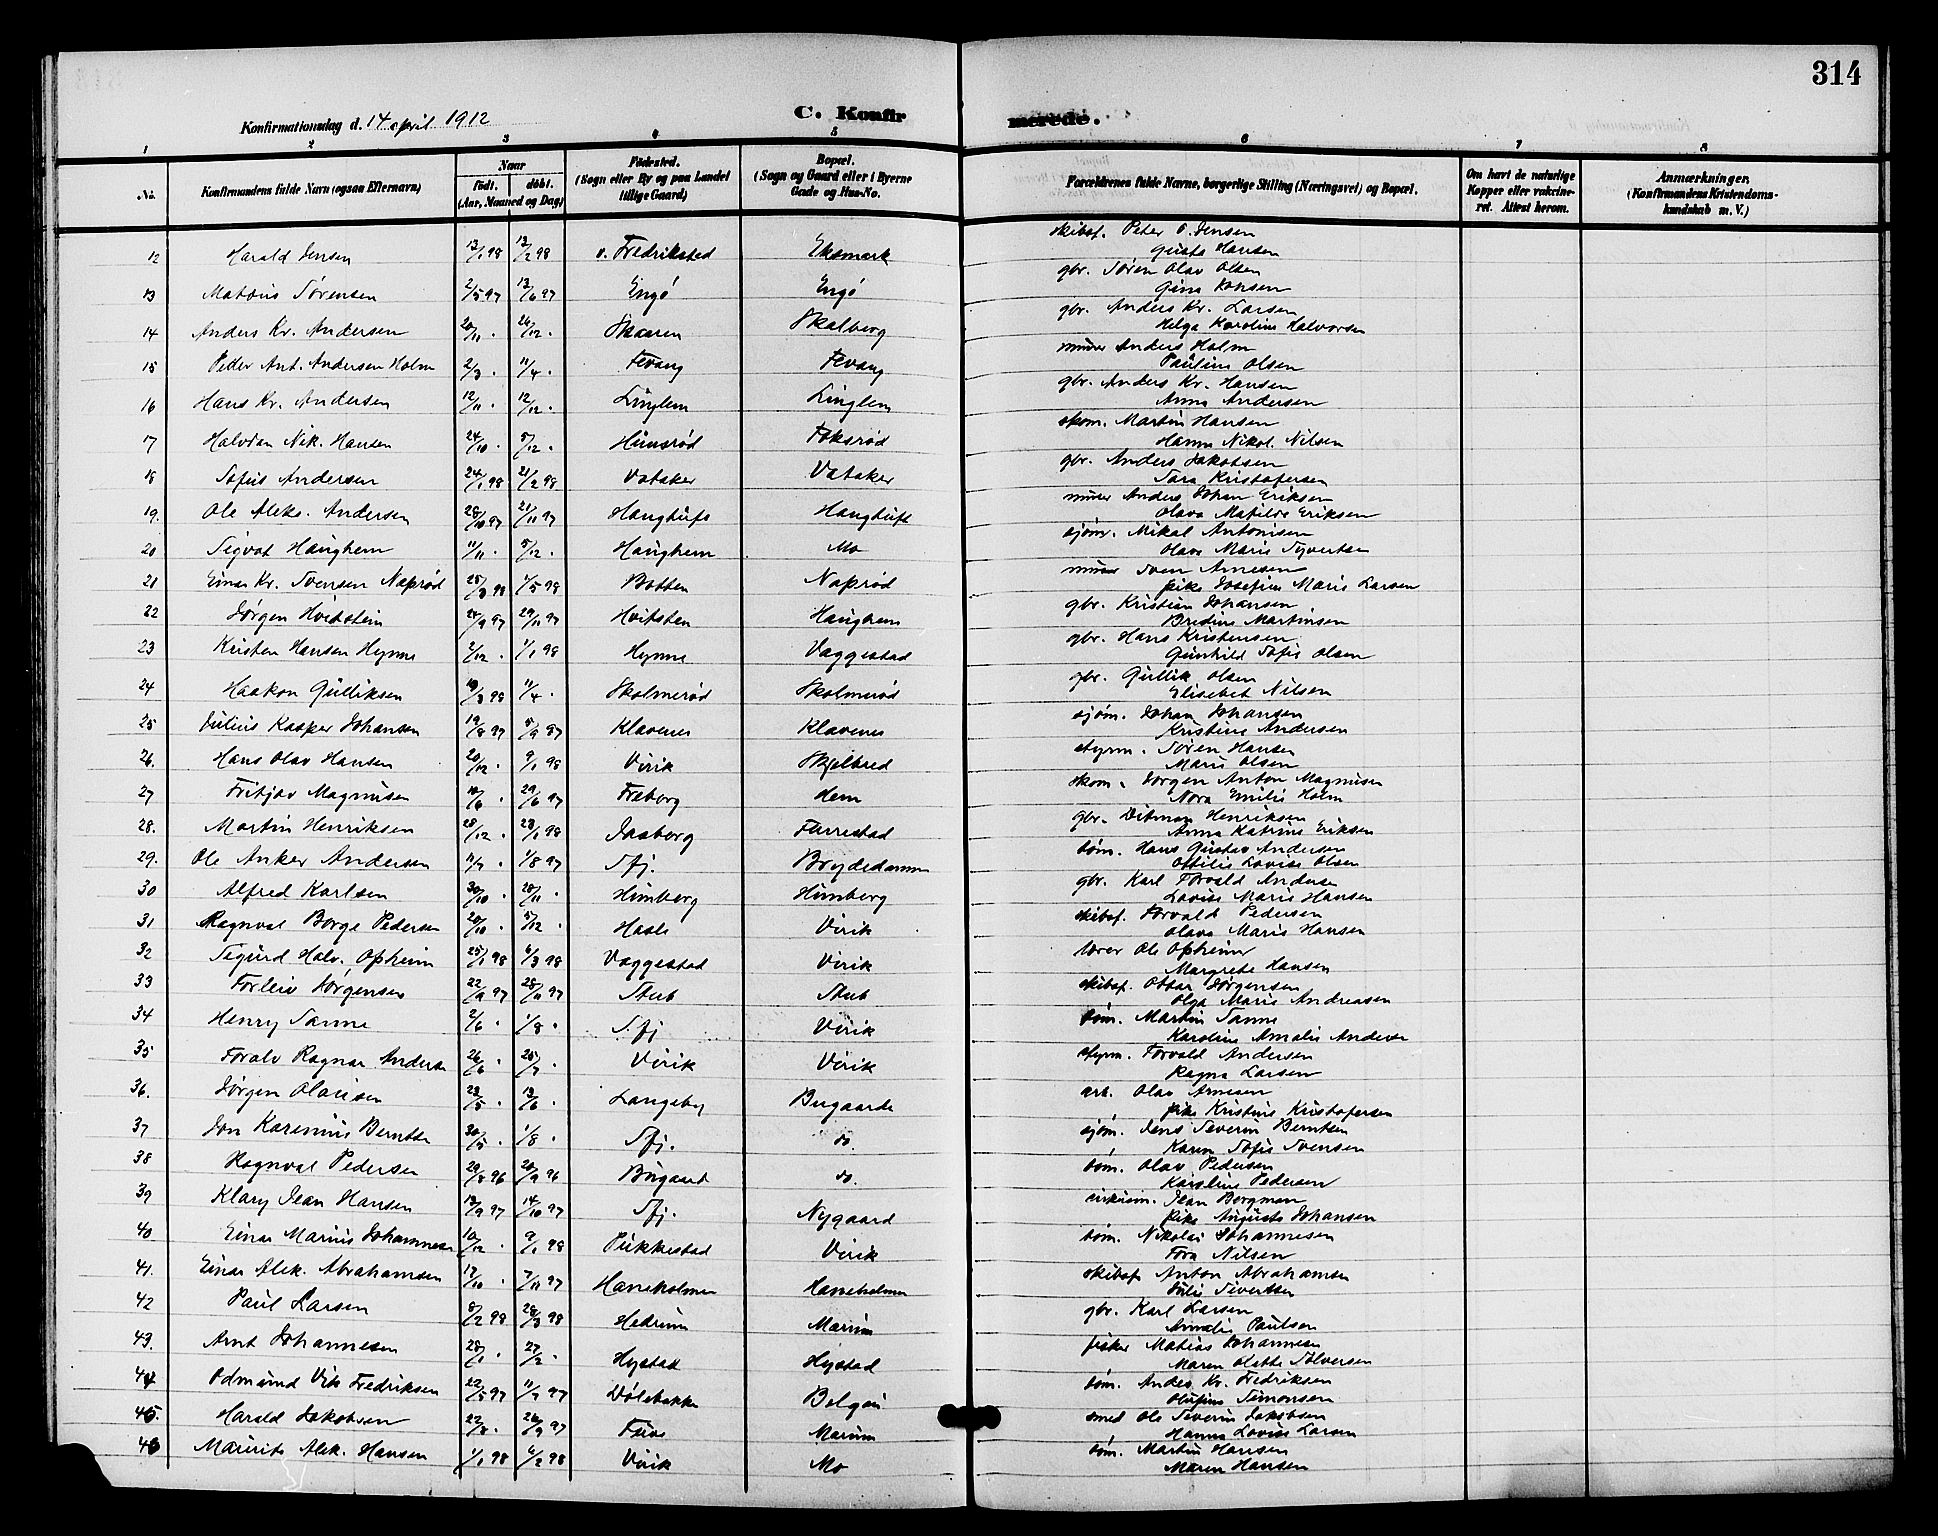 314
Konfirmationsdag d. 14 april 1912
C. Konfirmerede.
1 2 3 4 5 6 7 8
No. Konfirmandens fulde Navn (ogsaa Efternavn) Naar födt. döbt. (Aar, Maaned og Dag) Födested. (Sogn eller By og paa Landet tillige Gaard) Bopæl. (Sogn og Gaard eller i Byerne Gade og Hus-No. Forældrenes fulde Navne, borgerlige Stilling (Næringsvei) og Bopæl. Om havt de naturlige Kopper eller vakcineret. Attest herom. Anmærkninger. (Konfirmandens Kristendomskundskab m. V.)
12 Harald Jensen 12/1 98 13/2 98 v. Fredrikstad Eksmark skibsf. Peter O. Jensen
Gusta Hansen
13 Matæus Sørensen 2/5 97 13/6 97 Engø Engø gbr. Søren Olav Olsen
Gina Johsen
14 Anders Kr. Andersen 20/11 . 26/12 . Skaaren Skalberg gbr. Anders Kr. Larsen
Helga Karoline Halvorsen
15 Peder Ant. Andersen Holm 2/3 . 11/4 . Fevang Fevang murer Anders Holm
Pauline Olsen
16 Hans Kr. Andersen 12/11 . 12/12 . Linglem Linglem gbr. Anders Kr. Hansen
Anna Andersen
17 Halvdan Nik. Hansen 24/10 . 5/12 . Hunsrød Fokserød skom. Martin Hansen
Hanna Nikol. Nilsen
18 Sofus Andersen 24/1 98 21/2 98 Vataker Vataker gbr. Anders Jakobsen
Sara Kristofersen
19. Ole Aleks. Andersen 28/10 97 21/11 97 Haugtuft Haugtuft murer Anders Johan Eriksen
Olava Matilde Eriksen
20 Sigvat Haughem 11/11 . 5/12 . Haughem Mo sjøm. Mikal Antonisen
Olava Marie Syvertsen
21 Einar Kr. Svensen Naprød 25/3 98 1/5 98 Botten Naprød murer Sven Arnesen
pike Josefine Marie Larsen
22 Jørgen Hvitstein 24/9 97 29/11 97 Hvitsten Haughem gbr. Kristian Johansen
Bredine Martinsen
23 Kristen Hansen Hynne 2/12 . 1/1 98 Hynne Vaggestad gbr. Hans Kristensen
Gunhild Sofie Olsen
24 Haakon Gulliksen 19/3 98 11/4 . Skolmerød Skolmerød gbr. Gullik Olsen
Elisebet Nilsen
25 Julius Kasper Johansen 19/8 97 5/9 97 Klavenes Klavenes sjøm. Johan Johansen
Kristine Andersen
26. Hans Olav Hansen 20/12 . 9/1 98 Virik Skjelbred styrm. Søren Hansen
Marie Olsen
27 Fritjov Magnusen 10/6 . 29/6 97 Freberg Hem skom. Jørgen Anton Magnusen
Nora Emilie Holm
28. Martin Henriksen 28/12 . 23/1 98 Jaaberg Furrestad gbr. Ditman Henriksen
Anna Katrine Eriksen
29. Ole Anker Andersen 11/7 . 1/8 97 Sfj. Brydedammen tøm. Hans Gustav Andersen
Ottilie Lovise Olsen
30 Alfred Karlsen 30/10 . 28/11 . Himberg Himberg gbr. Karl Torvald Andersen
Lovise Marie Hansen
31 Ragnval Borge Pedersen 20/10 . 5/12 . Hasle Virik skibsf. Torvald Pedersen
Olava Marie Hansen
32 Sigurd Halv. Opheim 25/1 98 6/3 98 Vaggestad Virik lærer Ole Opheim
Margrete Hansen
33 Torleiv Jørgensen 22/9 97 28/11 97 Stub Stub skibsf. Ottar Jørgensen
Olga Marie Andreasen
34 Henry Sanne 2/6 . 1/8 . Sfj Virik tøm. Martin Sanne
Karoline Amalie Andersen
35 Toralv Ragnar Andersen 26/6 . 25/7 . Virik Virik styrm. Torvald Andersen
Ragna Larsen
36. Jørgen Olausen 23/5 . 13/6 . Langeby Bugaarde arb. Olav Arnesen
pike Kristine Kristofersen
37 Jon Karenius Berntsen 30/5 . 1/8 . Sfj. do. sjøm. Jens Severin Berntsen
Karen Sofie Svensen
38 Ragnval Pedersen 29/8 96 20/9 96 Bugaard do. tøm. Olav Pedersen
Karoline Pedersen
39 Klary Jean Hansen 13/9 97 14/10 97 Sfj. Nygaard cirkusm. Jean Bergman
pike Augusta Johansen
40 Einar Marius Johannesen 10/12 . 9/1 98 Pukkestad Virik tøm. Nikolai Johannesen
Tora Nilsen
41. Einar Alek. Abrahamsen 17/10 . 7/11 97 Haneholmen Haneholmen skibsf Anton Abrahamsen
Julie Sivertsen
42 Paul Larsen 8/2 98 28/3 98 Hedrum Marum gbr. Karl Larsen
Amalie Paulsen
43. Arnt Johannesen 28/1 . 27/2 . Hystad Hystad fisker Matias Johannesen
Maren Olette Tolversen
44 Odmund Vik Fredriksen 22/5 97 11/7 97 Dølebakke Belgau tøm. Anders Kr. Fredriksen
Olufine Simonsen
45. Harald Jakobsen 22/8 . 26/9 97 Furs Marum smed Ole Severin Jakobsen
Hanna Lovise Larsen
46 Maurits Alek. Hansen 1/1 98 6/2 98 Virik Mo tøm. Martin Hansen
Maren Hansen